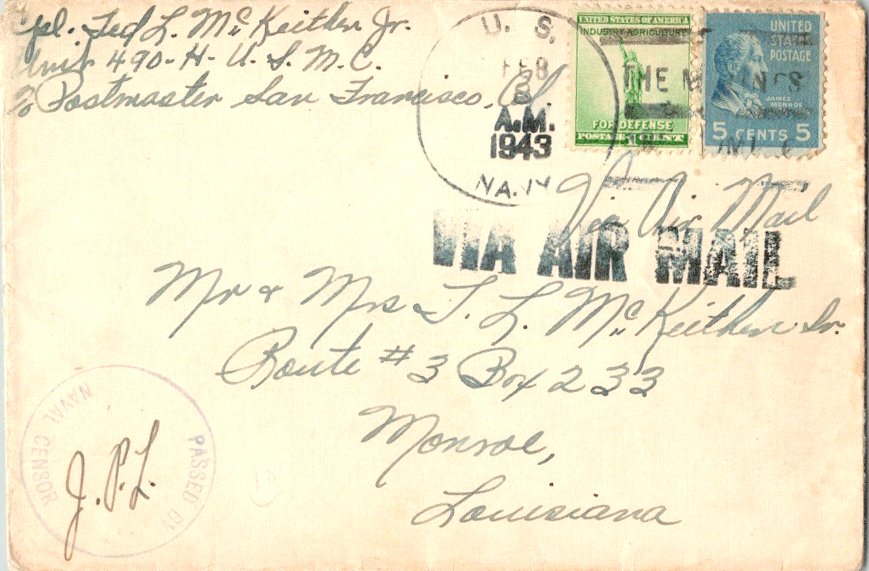 Cpl. Ted L. McKeithen Jr.
Unit 490-H- U.S.M.C.
c/o Postmaster San Francisco, Cal
U. S.
FEB
8
A.M.
1943
NAVY
UNITED STATES OF AMERICA
INDUSTRY-AGRICULTURE
FOR DEFENSE
POSTAGE 1 CENT
UNITED
STATES
POSTAGE
JAMES
MONROE
5 CENTS 5
THE MARINES
Via Air Mail
VIA AIR MAIL
Mr & Mrs T. L. McKeithen Sr.
Route #3 Box 233
Monroe,
Louisiana
PASSED BY
NAVAL CENSOR
J. P. L.